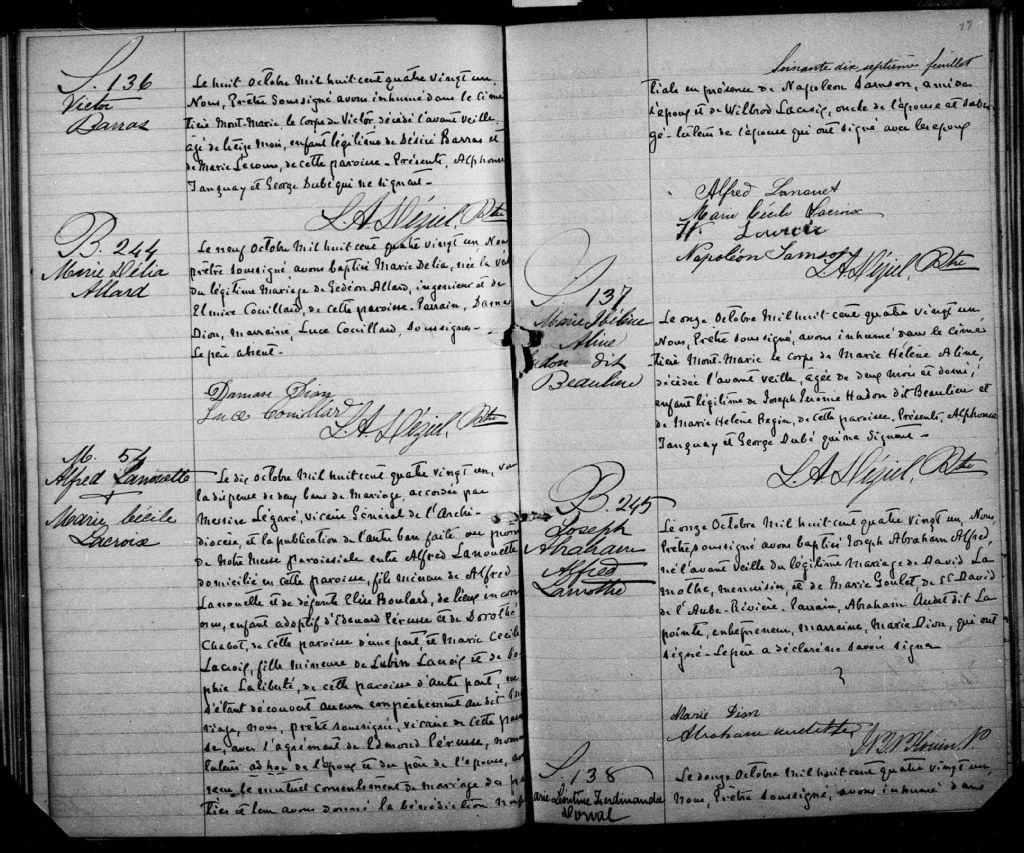 S. 136
Victor
Barras
Le huit Octobre Mil huit cent quatre vingt un,
Nous, Prêtre Soussigné avons inhumé dans le Cime
tière Mont-Marie, le Corps de Victor décédé l'avant veille,
âgé de treize Mois, enfant légitime de Désiré Barras et
de Marie Lecours, de cette paroisse - Présents, Alphonse
Tanguay et George Dubé qui ne signent -
L. A. Déziel, Ptre
B. 244
Marie Délia
Allard
Le neuf Octobre Mil huit cent quatre vingt un Nous
prêtre soussigné, avons baptisé Marie Delia, née la veille
du légitime Mariage de Gédéon Allard, ingenieur et de
Elmire Couillard, de cette paroisse. Parrain, Damase
Dion, Marraine, Luce Couillard, Soussignés -
Le père absent -
Damase Dion
Luce Couillard
L. A. Déziel, Ptre
M. 54
Alfred Lanouette
+
Marie Cécile
Lacroix
Le dix Octobre Mil huit cent quatre vingt un, vu
la dispense de deux bans de Mariage, accordée par
Messire Légaré, vicaire Général de l'Archi-
diocèse, et la publication de l'autre ban faite au prone
de Notre Messe paroissiale entre Alfred Lanouette
domicilié en cette paroisse, fils mineur de Alfred
Lanouette et de défunte Elise Boulard, de lieux incon
nu, enfant adoptif d'Edouard Pérusse et de Dorothé
Chabot, de cette paroisse d'une part, et Marie Cecile
Lacroix, fille mineure de Lubin Lacroix et de So-
phie Laliberté, de cette paroisse d'autre part, ne
s'étant découvert aucun empêchement au dit Ma
riage, Nous, prêtre soussigné, vicaire de cette parois
se, avec l'agrément de Edmond Pérusse,
tuteur ad hoc de l'époux et du père de l'épouse, avons
reçu le mutuel consentement de mariage des par
ties et leur avons donné la bénédiction nup
77
Soixante dix septième feuillet
tiale en présence de Napoleon Samson, ami de
l'époux et de Wilbrod Lacroix, oncle de l'épouse et
de l'épouse qui ont signé avec les époux
Alfred Lanouet
Marie Cécile Lacroix
W. Lacroix
Napoléon Samson
L. A. Déziel Ptre
S. 137
Marie Hélène
Aline
dit
Beaulieu
Le onze Octobre Mil huit cent quatre vingt un
Nous, Prêtre Soussigné, avons inhumé dans le Cime
tière Mont-Marie le corps de Marie Hélène Aline,
décédée l'avant veille, âgée de deux mois et demi,
enfant légitime de Joseph Jérome Hudon dit Beaulieu et
de Marie Helène Begin, de cette paroisse. Présents, Alphonse
Tanguay et George Dubé qui ne signent -
L. A. Déziel, Ptre
B. 245
Joseph
Abraham
Alfred
Lamothe
Le onze Octobre Mil huit cent quatre vingt un, Nous
Prêtre soussigné avons baptisé Joseph Abraham Alfred,
né l'avant veille du légitime Mariage de David La
mothe, menuisier, et de Marie Goulet de St David
de l'Aube-Rivière. Parrain, Abraham Audet dit La
pointe, entrepreneur, marraine, Marie Dion, qui ont
signé - Le père a déclaré ne savoir signer
Marie Dion
Abraham
S. 138
Marie Léontine Ferdinanda
Dorval
Le douze Octobre Mil huit cent quatre vingt un,
Nous, Prêtre Soussigné, avons inhumé dans